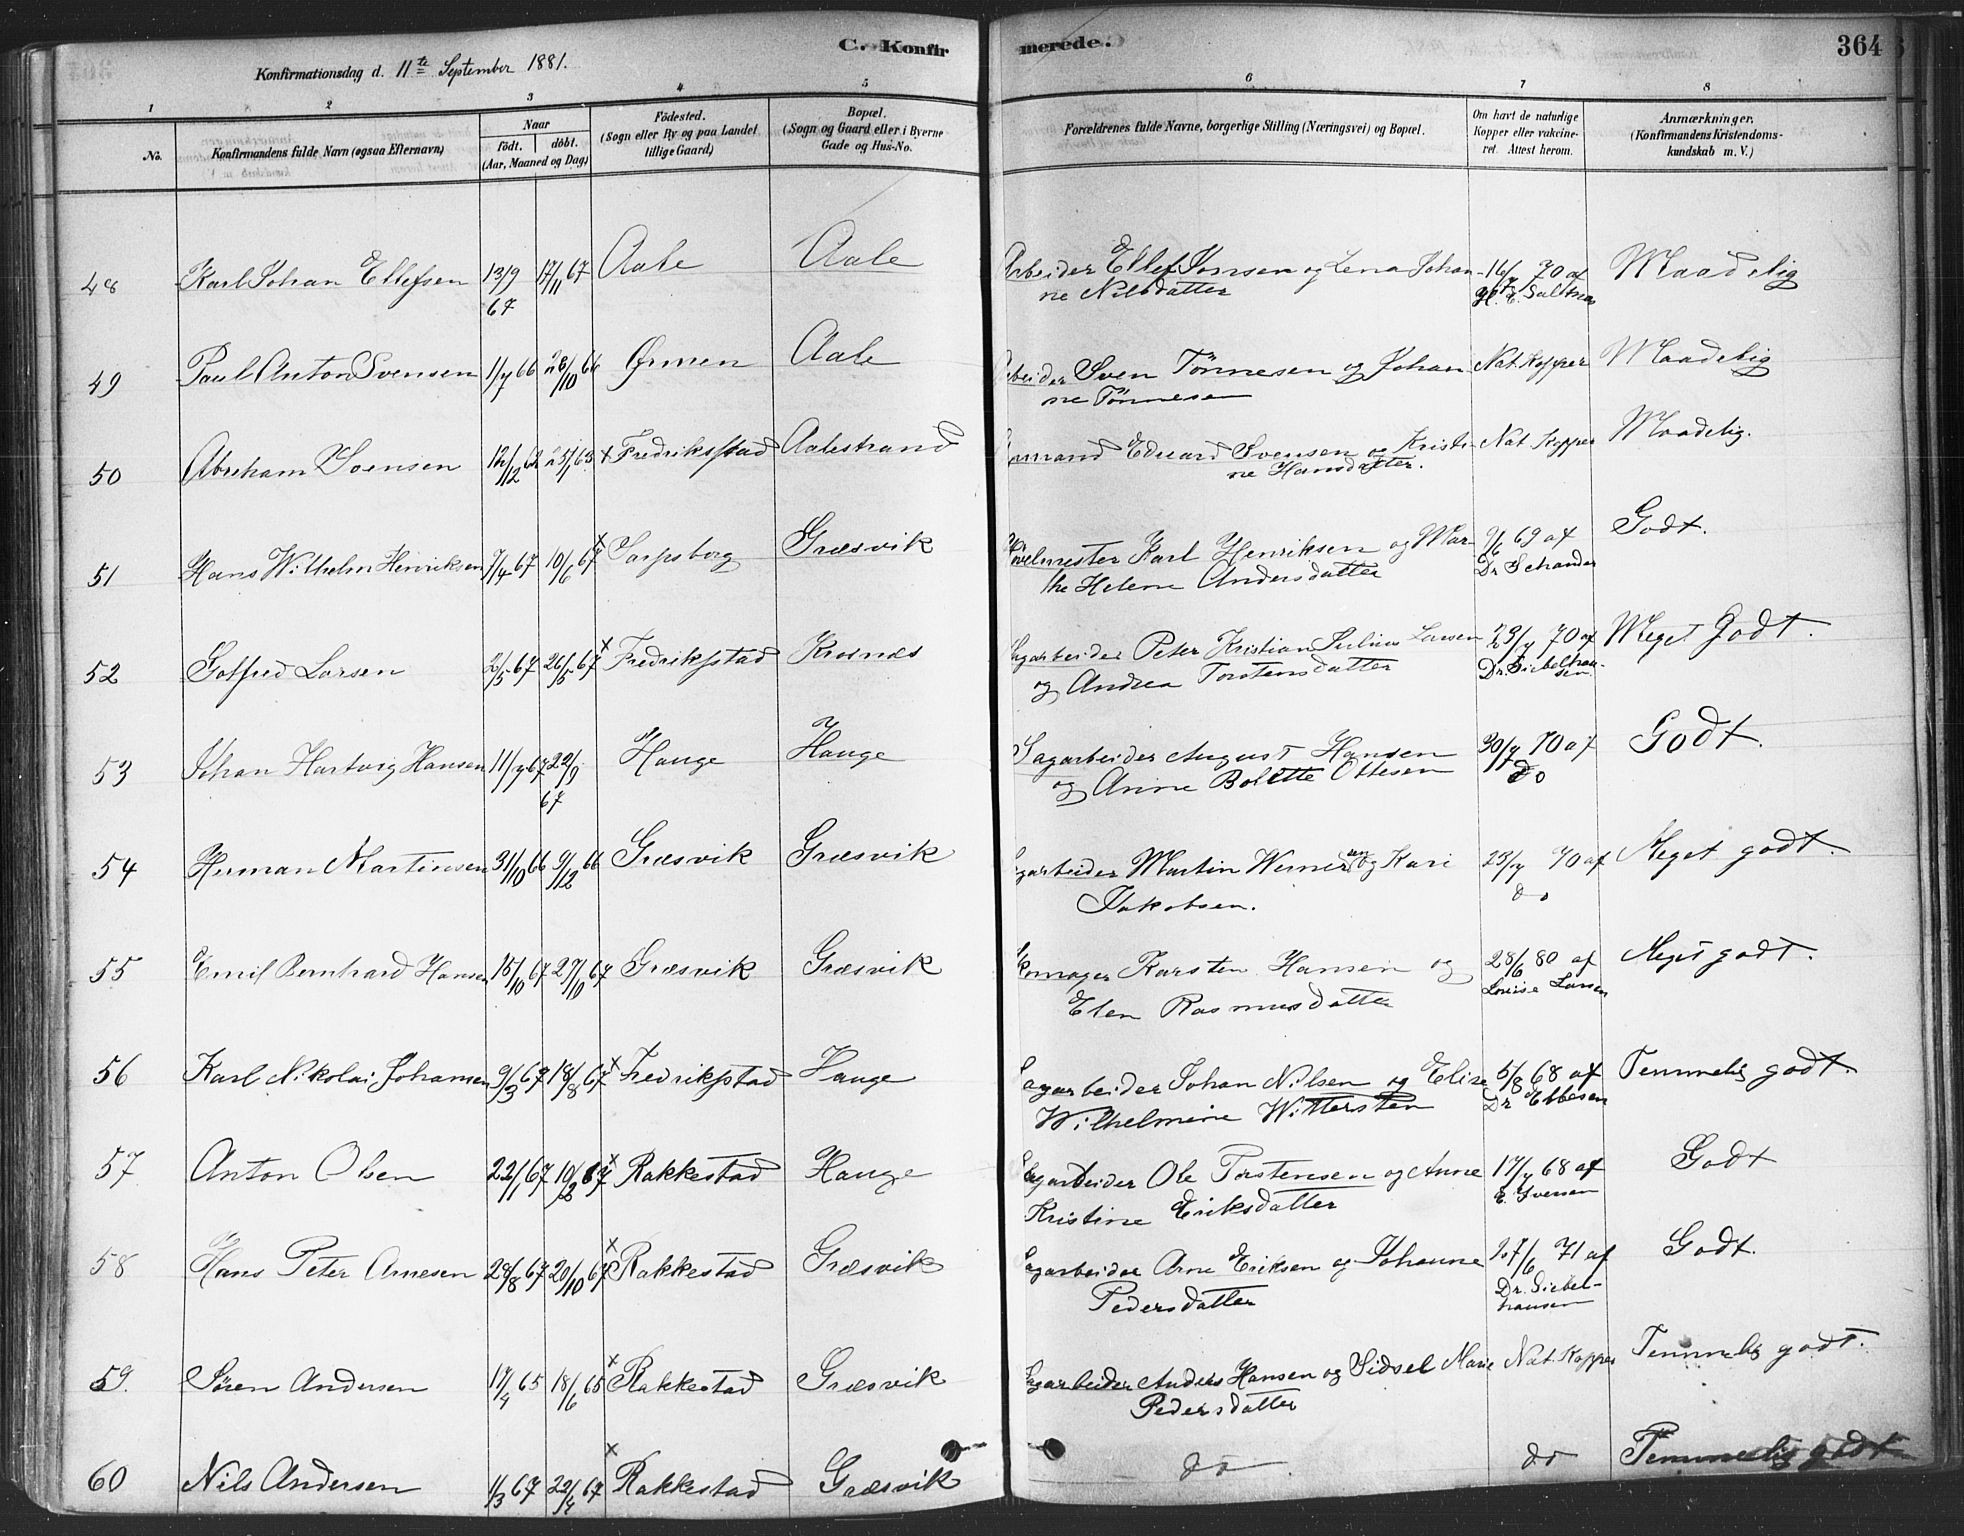 C. Konfirmerede. 364
Konfirmationsdag d. 11te September 1881.
1 2 3 4 5 6 7 8
No. Konfirmandens fulde Navn (ogsaa Efternavn) Naar født. døbt. (Aar, Maaned og Dag) Fødested. (Sogn eller By og paa Landet tillige Gaard) Bopæl. (Sogn og Gaard eller i Byerne Gade og Hus-No. Forældrenes fulde Navne, borgerlige Stilling (Næringsvei) og Bopæl. Om havt de naturlige Kopper eller vakcineret. Attest herom. Anmærkninger. (Konfirmandens Kristendomskundskab m. V.)
48 Karl Johan Ellefsen 13/9 67 17/11 67 Aale Aale Arbeider Ellef Jonsen og Lena Johan- 16/7 70 af Maadelig
ne Nilsdatter
49 Paul Anton Svensen 1/7 66 28/10 66 Ørmen Aale Arbeider Sven Tönnesen og Johan Nat. Kopper Maadelig
ne Tönnesen
50 Abraham Svensen 12/12 62 25/1 63 x Fredriksstad Aalestrand Eduard Svensen og Kristi- Nat. Kopper Maadelig.
ne Hansdatter.
51 Hans Wilhelm Henriksen 7/4 67 10/6 67 x Sarpsborg Græsvik Karl Henriksen og Mar- 69 af Godt.
the Helene Andersdatter Dr Schander
52 Gotfred Larsen 2/5 67 26/5 67 x Fredrikstad Krosnæs Sagarbeider Peter Kristian Julius Larsen 23/7 70 af Meget Godt.
og Andrea Torstensdatter Dr. Siebelhausen
53 Johan Hartvig Hansen 11/7 67 22/9 67 Hauge Hauge Sagarbeider August Hansen 30/7 70 af Godt.
og Anne Bolette Ottesen do
54 Herman Martinsen 31/10 66 9/12 66 Græsvik Græsvik Sagarbeider Martin Wernersen og Kari 23/7 70 af Meget godt.
Jakobsen. do
55 Emil Bernhard Hansen 15/10 67 27/10 67 Græsvik Græsvik Skomager Karsten Hansen og 28/6 80 af Meget godt.
Elen Rasmusdatter Louise Larsen
56 Karl Nikolai Johansen 9/3 67 18/8 67 x Fredrikstad Hauge Sagarbeider Johan Nilsen og Elise 5/8 68 af Temmelig godt.
Wilhelmine Wittersten Dr Ebbesen
57 Anton Olsen 22/1 67 10/2 67 x Rakkestad Hauge Sagarbeider Ole Torstensen og Anne 17/7 68 af Godt
Kristine Eriksdatter E. Iversen
58 Hans Peter Arnesen 28/8 67 20/10 67 x Rakkestad Græsvik Sagarbeider Arne Eriksen og Johanne 27/6 71 af Godt.
Pedersdatter Dr. Siebel-
hausen
59. Sören Andersen 17/4 65 18/6 65 x Rakkestad Græsvik Sagarbeider Anders Hansen og Sidsel Marie Nat. Kopper Temmelig godt.
Pedersdatter
60 Nils Andersen 1/3 67 22/4 67 x Rakkestad Græsvik do do Temmelig godt